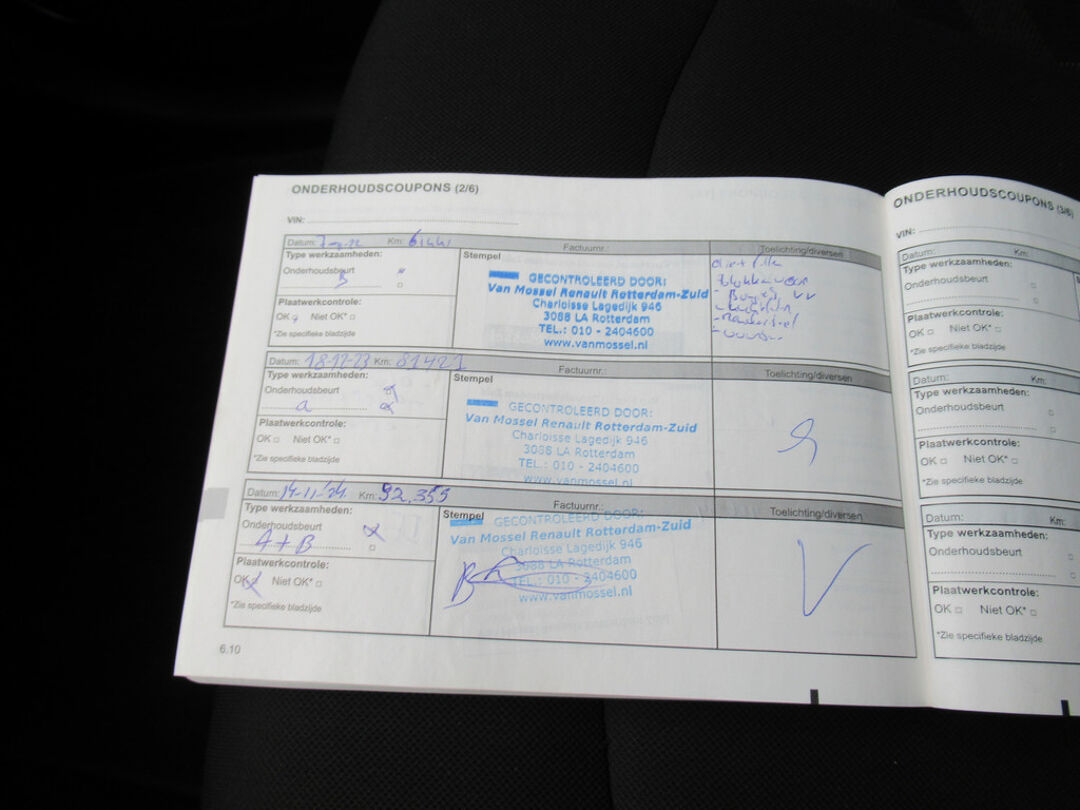 ONDERHOUDSCOUPONS (2/6)
VIN:
Datum: Km: 61441 Factuurnr.: Toelichting/diversen
Type werkzaamheden: Stempel
Onderhoudsbeurt
B
Plaatwerkcontrole:
OK Niet OK*
*Zie specifieke bladzijde
GECONTROLEERD DOOR:
Van Mossel Renault Rotterdam-Zuid
Charloisse Lagedijk 946
3088 LA Rotterdam
TEL.: 010 - 2404600
www.vanmossel.nl
Datum: 18-12-23 Km: 81421 Factuurnr.: Toelichting/diversen
Type werkzaamheden: Stempel
Onderhoudsbeurt
a
Plaatwerkcontrole:
OK Niet OK*
*Zie specifieke bladzijde
GECONTROLEERD DOOR:
Van Mossel Renault Rotterdam-Zuid
Charloisse Lagedijk 946
3088 LA Rotterdam
TEL.: 010 - 2404600
www.vanmossel.nl
Datum: 14-11-'24 Km: 92.355 Factuurnr.: Toelichting/diversen
Type werkzaamheden: Stempel
Onderhoudsbeurt
A+B
Plaatwerkcontrole:
OK Niet OK*
*Zie specifieke bladzijde
GECONTROLEERD DOOR:
Van Mossel Renault Rotterdam-Zuid
Charloisse Lagedijk 946
3088 LA Rotterdam
TEL.: 010 - 2404600
www.vanmossel.nl
V
6.10
ONDERHOUDSCOUPONS (3/6)
VIN:
Datum: Km:
Type werkzaamheden:
Onderhoudsbeurt
Plaatwerkcontrole:
OK Niet OK*
*Zie specifieke bladzijde
Datum: Km:
Type werkzaamheden:
Onderhoudsbeurt
Plaatwerkcontrole:
OK Niet OK*
*Zie specifieke bladzijde
Datum: Km:
Type werkzaamheden:
Onderhoudsbeurt
Plaatwerkcontrole:
OK Niet OK*
*Zie specifieke bladzijde